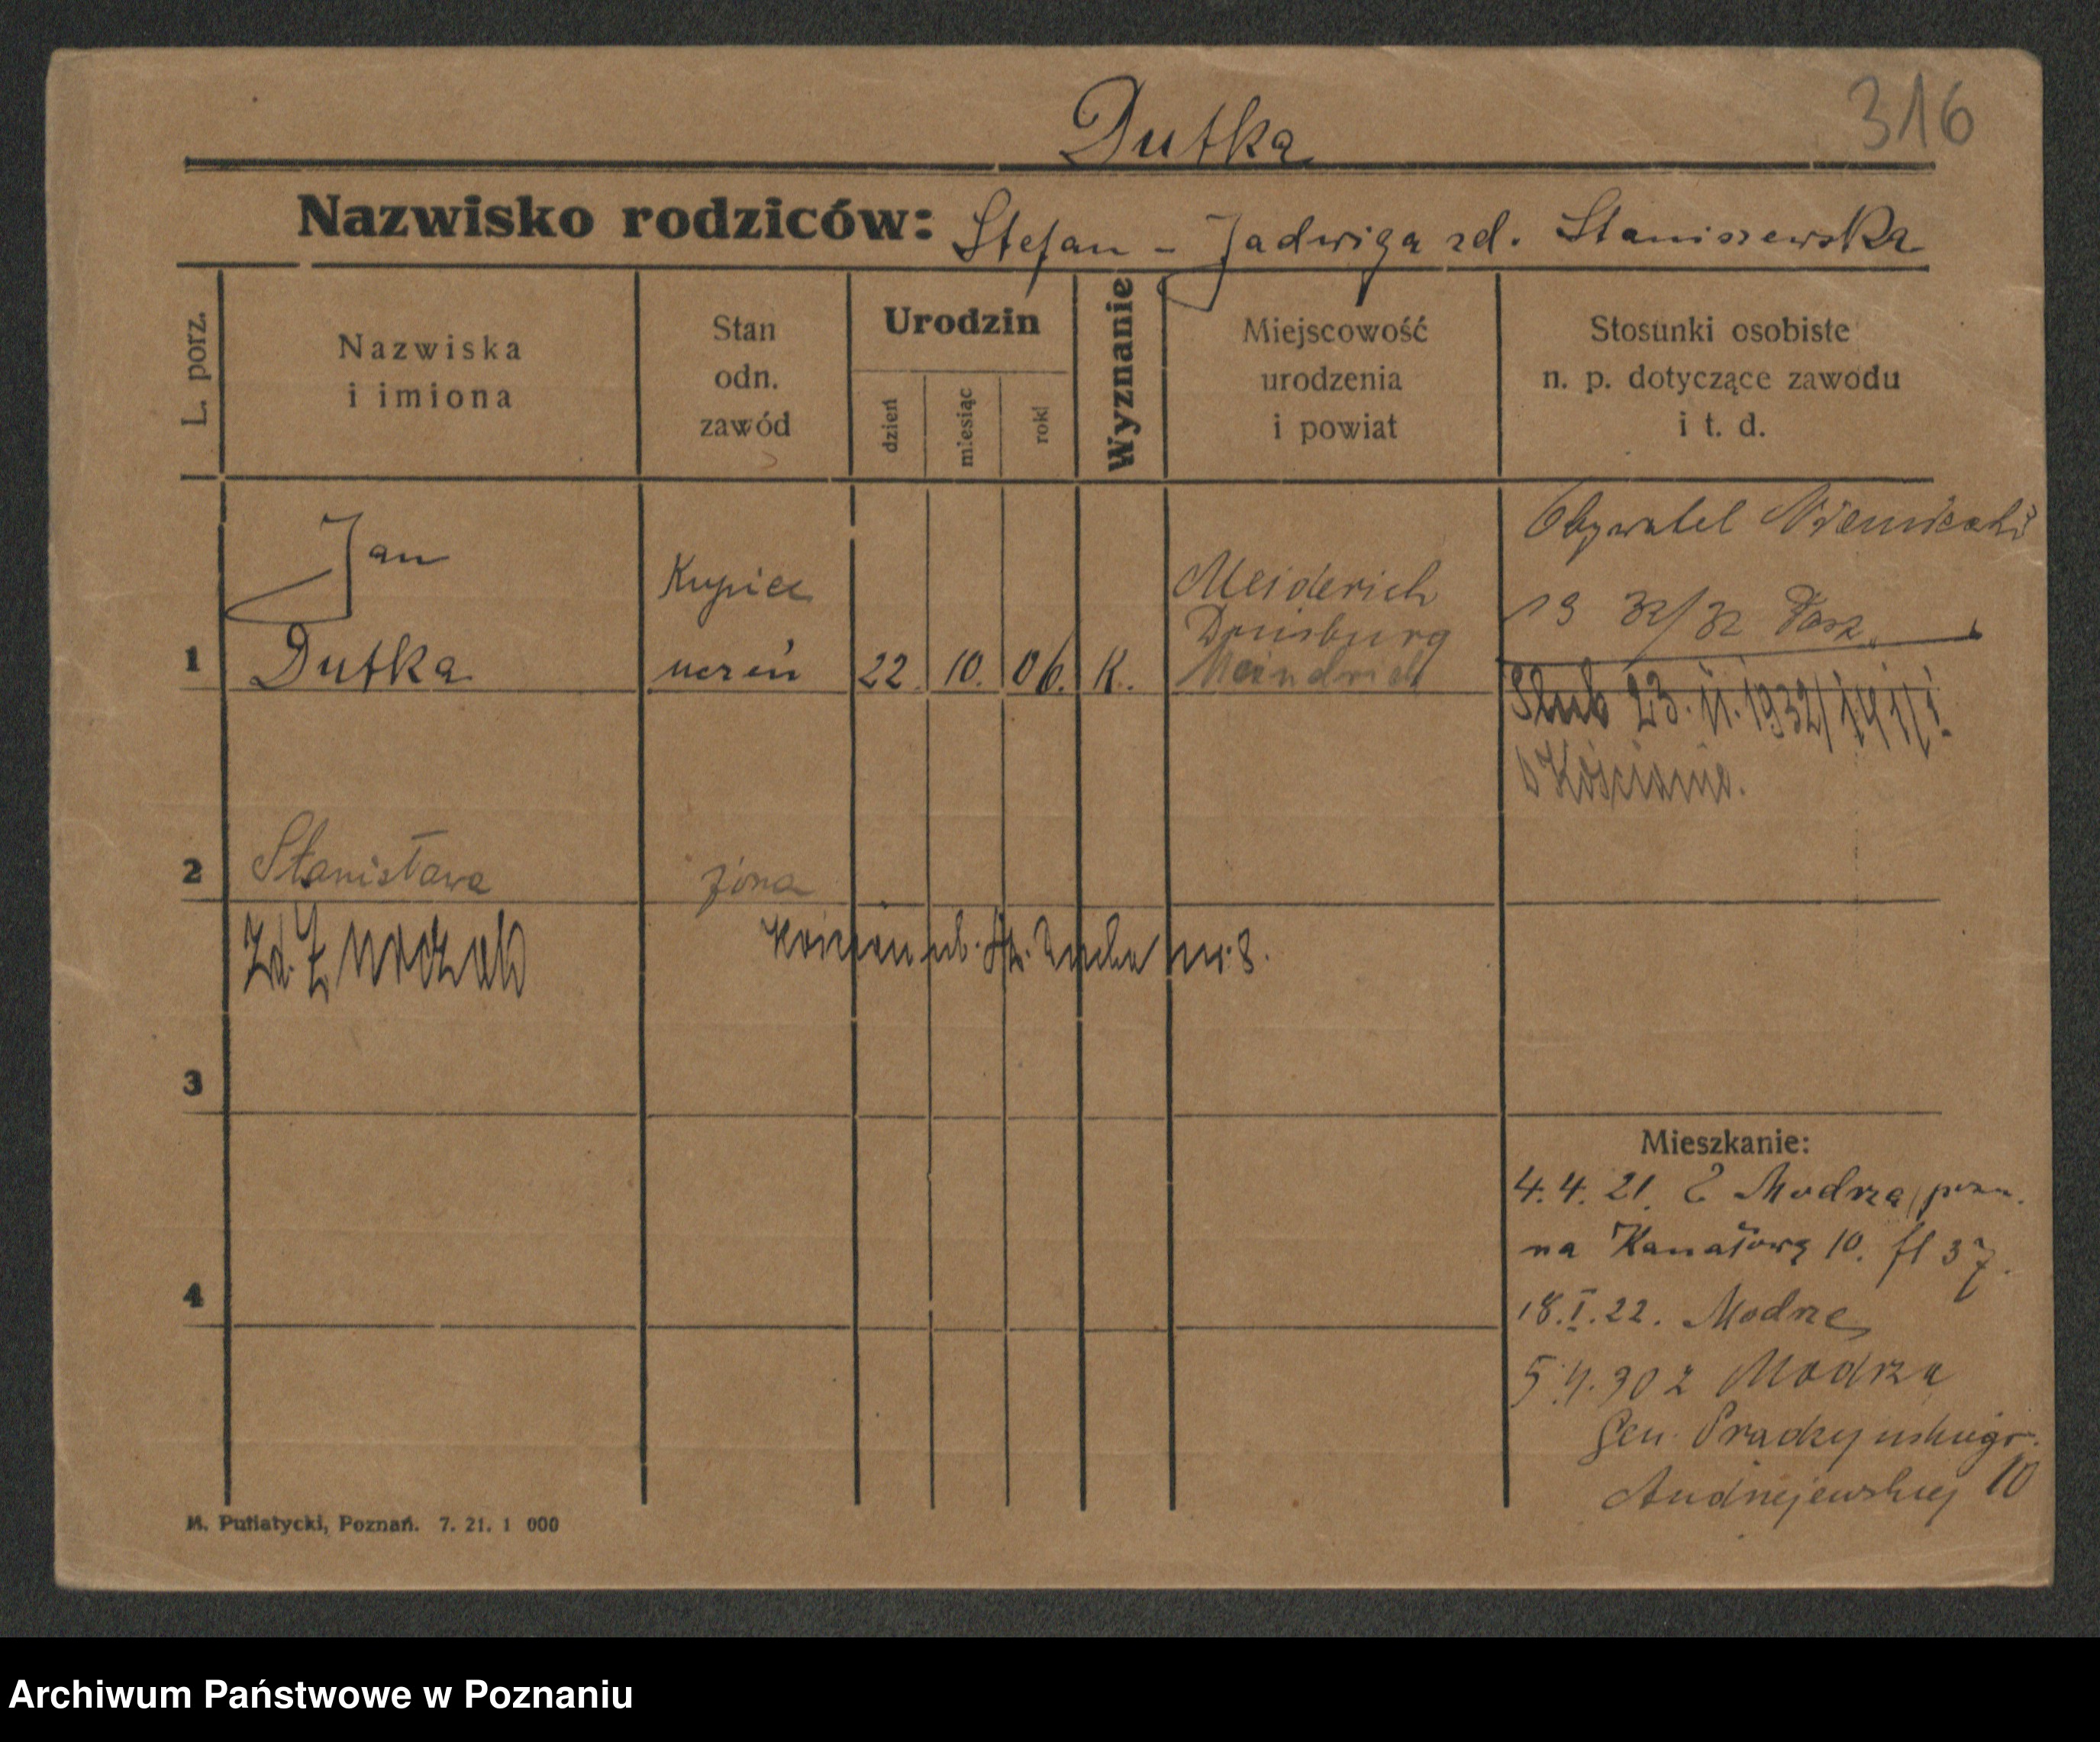 316
Dutka
Nazwisko rodziców: Stefan - Jadwiga zd. Staniszewska
L. porz.
Nazwiska
i imiona
Stan
odn.
zawód
Urodzin
dzień
miesiąc
rok
Wyznanie
Miejscowość
urodzenia
i powiat
Stosunki osobiste
n. p. dotyczące zawodu
i t. d.
1
Jan
Dutka
Kupiec
uczeń
22. 10. 06. K.
Meiderich
Duisburg
Obywatel Niemiecki
19 32/32 Pasz.
Ślub 23. II. 1932
Kościanie.
2
Stanisława
żona
zd.
Kościan ul. Św. Ducha nr. 8.
3
4
Mieszkanie:
4. 4. 21. Z Modrza, pozn.
na Kanałową 10. fl 37.
18. I. 22. Modrze
5. 4. 30 z Modrza
Gen. Prądzyńskiego
Andrzejewskiej 10
M. Putiatycki, Poznań. 7. 21. 1 000
Archiwum Państwowe w Poznaniu